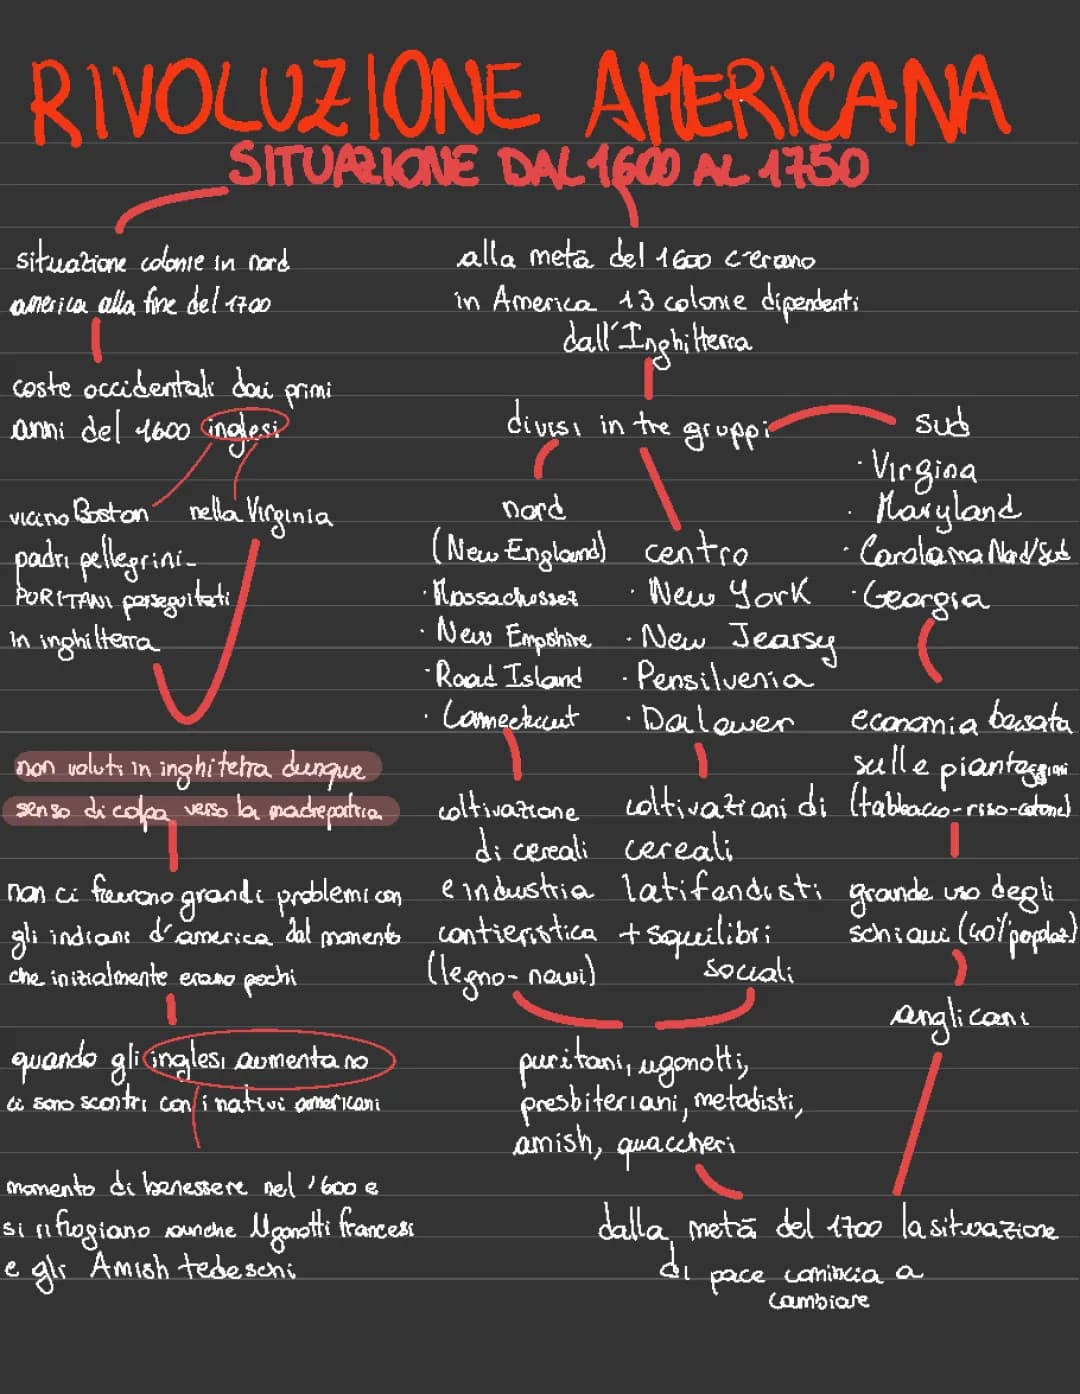 RIVOLUZIONE AMERICANA
SITUAZIONE DAL 1600 AL 1750
situazione colonie in nord
america alla fine del 1700
coste occidentali dai primi
anni del 1600 inglesi
vicino Boston
padri pellegrini-
PURITANI perseguitati
in inghilterra
nella Virginia
non voluti in inghilterra dunque
senso di colpa verso la madrepatria
non ci furono grandi problemi con
gli indiani d'america dal momento
che inizialmente erano pochi
quando gli inglesi aumentano
ci sono scontri con i nativi americani
momento di benessere nel '600 e
si rifugiano anche Ugonotti francesi
e gli Amish tedeschi
alla metà del 1600 c'erano
in America 13 colonie dipendenti
dall'Inghilterra
divisi in tre gruppi
nord
(New England)
· Massachusset
· New Empshire
· Road Island
· Conneckcut
coltivazione
di cereali
e industria
cantieristica
(legno-navi)
centro
· New York
· New Jearsy
· Pensilvenia
· Dalawer
coltivazioni di
cereali
latifondisti
+ squilibri
sociali
puritani, ugonotti,
presbiteriani, metodisti,
amish, quaccheri
sud
· Virgina
· Maryland
· Carolaina Nord/Sud
· Georgia
economia basata
sulle piantaggini
(tabbacco-riso-cotone)
grande uso degli
schiavi (40% popolaz)
anglicani
dalla metà del 1700 la situazione
di pace comincia a
cambiare